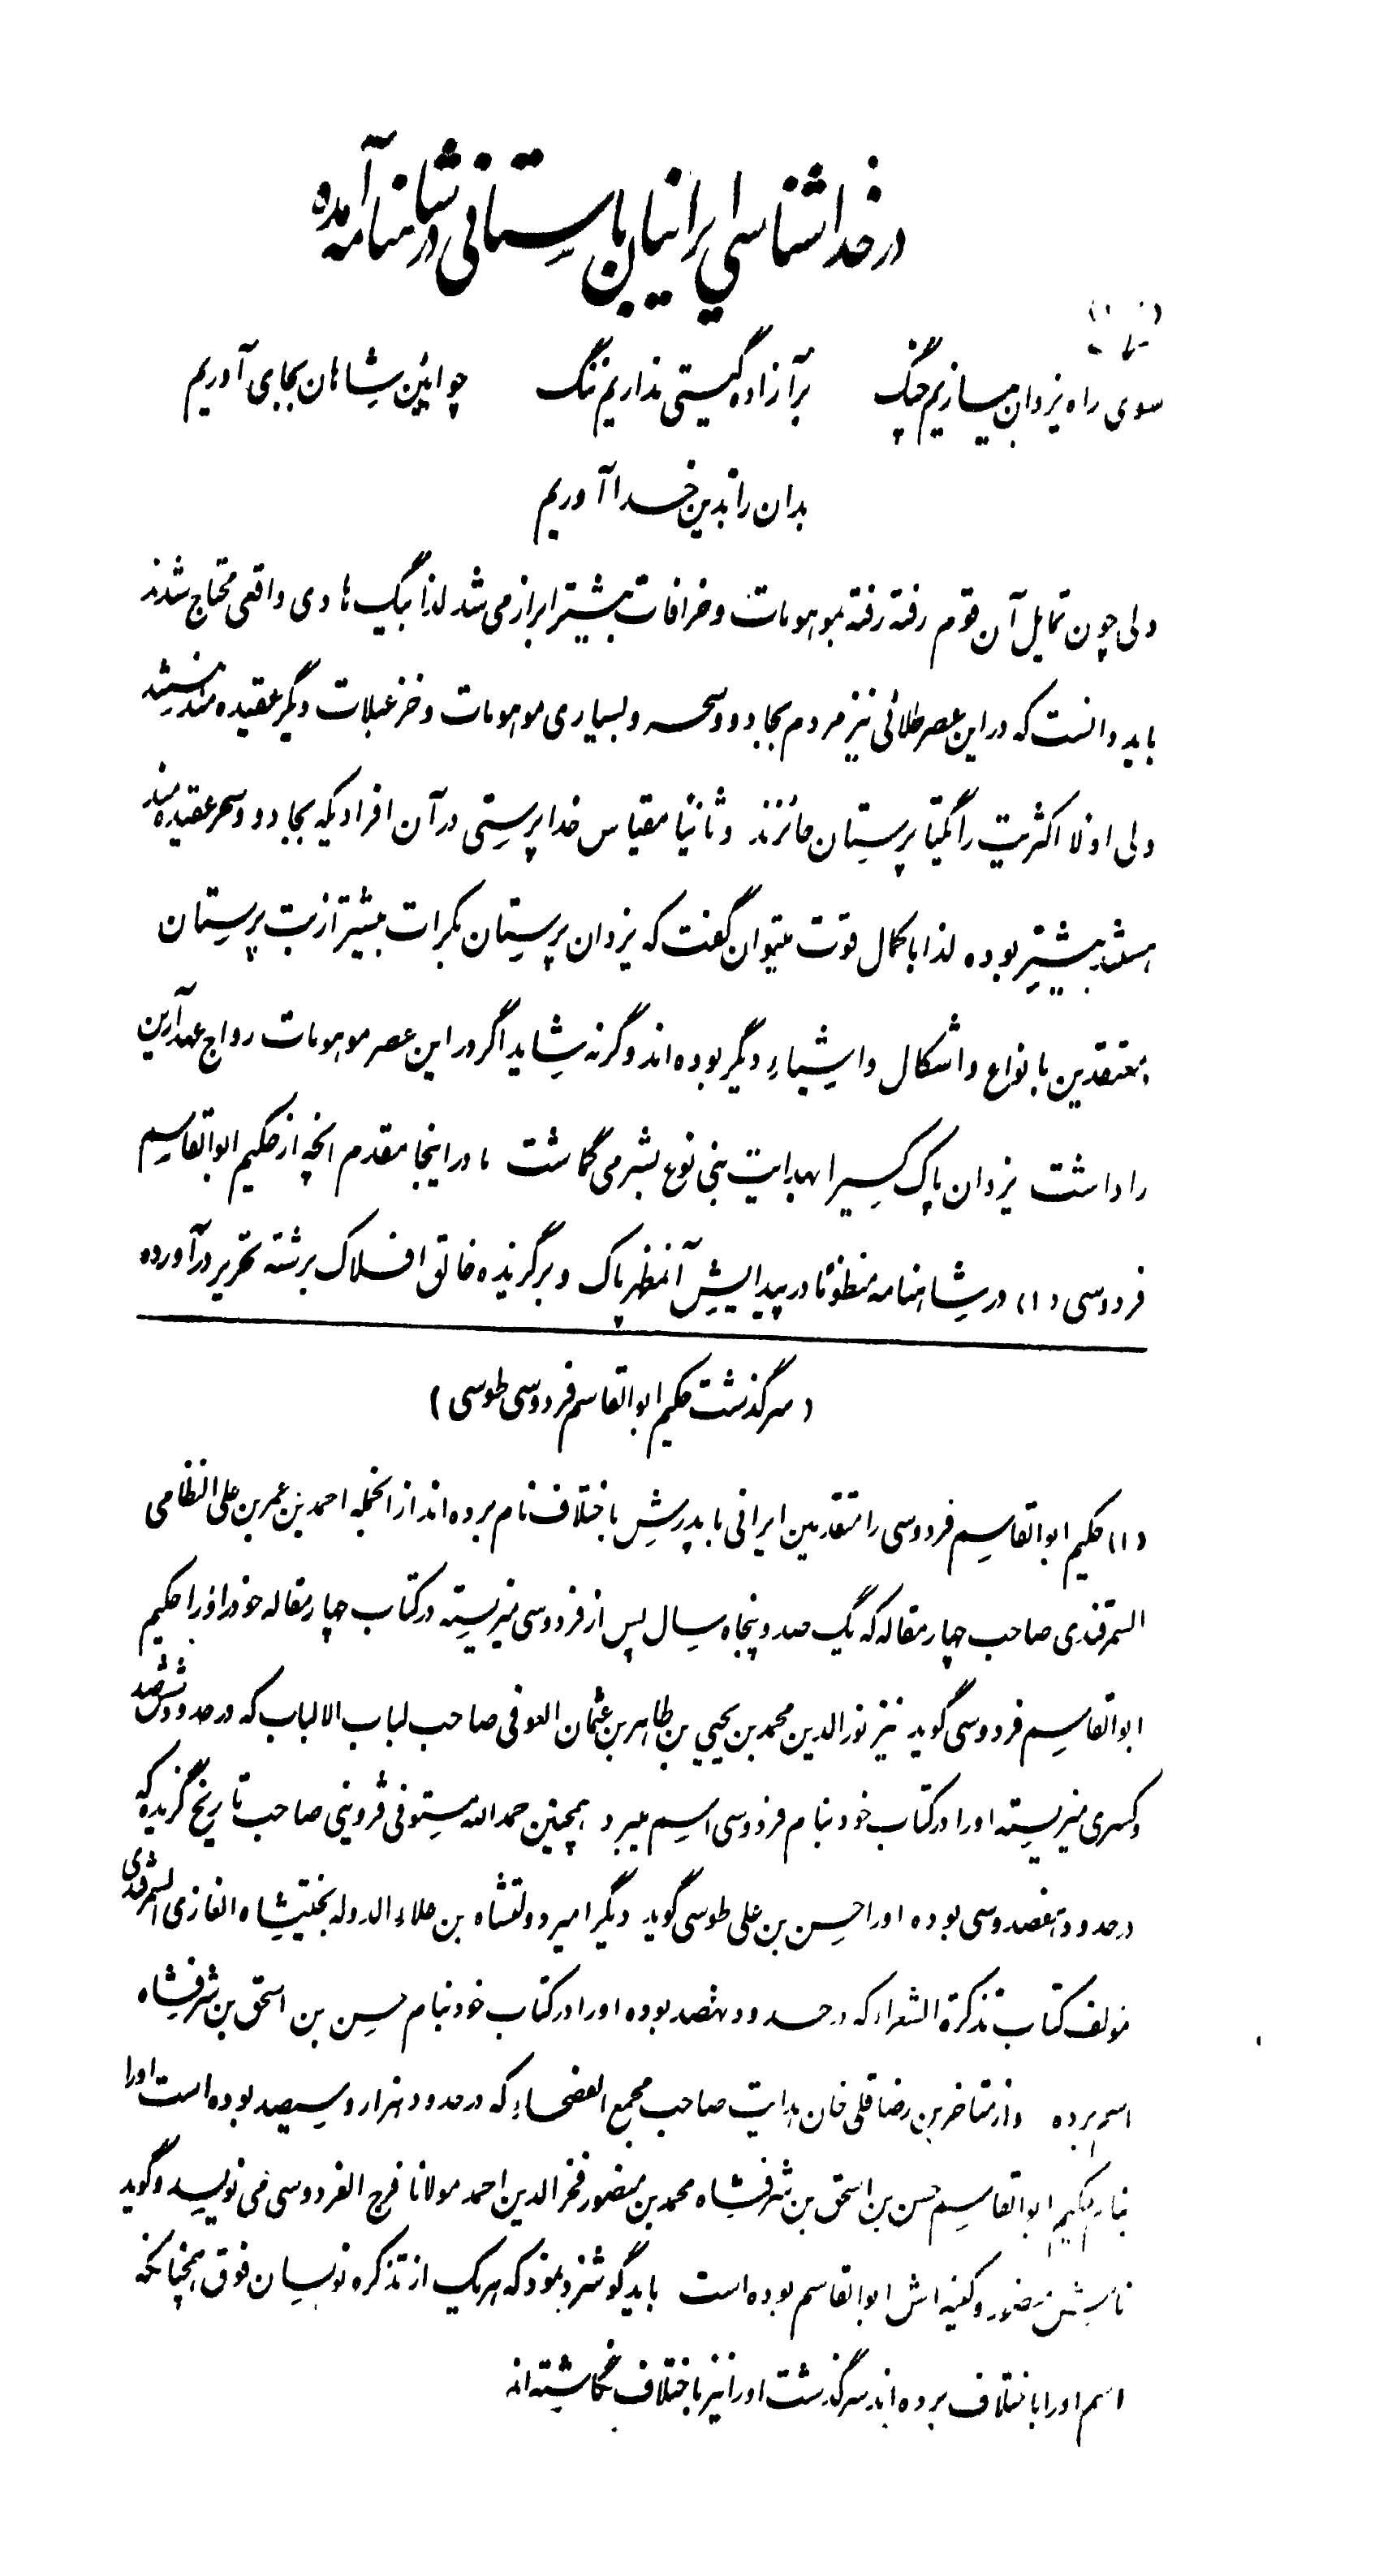 در خداشناسی ایرانیان باستانی در شاهنامه آمده
سوی راه یزدان بیازیم چنگ    بر آزاده گیتی نداریم ننگ    چو ایین شاهان بجای آوریم
بدان را بدین خدا آوریم
ولی چون تمایل آن قوم رفته رفته بموهومات و خرافات بیشتر ابراز می شد لذا بیک هادی واقعی محتاج شدند
باید دانست که در این عصر طلائی نیز مردم بجادو و سحر و بسیاری موهومات و خزعبلات دیگر عقیده مند میشدند
ولی اولا اکثریت را یکتا پرستان حائزند و ثانیا مقیاس خدا پرستی در آن افرادیکه بجادو و سحر عقیده مند
هستند بیشتر بوده لذا با کمال قوت میتوان گفت که یزدان پرستان بکرات بیشتر از بت پرستان
معتقدین بانواع و اشکال و اشیاء دیگر بوده اند و گرنه شاید اگر در این عصر موهومات رواج عهد آرین
را داشت یزدان پاک کسیرا بهدایت بنی نوع بشر می گماشت ما در اینجا مقدم انچه از حکیم ابوالقاسم
فردوسی (۱) در شاهنامه منظومًا در پیدایش آنمظهر پاک و برگزیده خالق افلاک برشته تحریر درآورده
(سرگذشت حکیم ابوالقاسم فردوسی طوسی)
(۱) حکیم ابوالقاسم فردوسی را متقدمین ایرانی با پدرش باختلاف نام برده اند از انجمله احمد بن عمر بن علی النظامی
السمرقندی صاحب چهار مقاله که یک صد و پنجاه سال پس از فردوسی میزیسته در کتاب چهار مقاله خود او را حکیم
ابوالقاسم فردوسی گوید نیز نورالدین محمد بن یحیی بن طاهر بن عثمان العوفی صاحب لباب الالباب که در حدود ششصد
و کسری میزیسته او را در کتاب خود بنام فردوسی اسم میبرد همچنین حمدالله مستوفی قزوینی صاحب تاریخ گزیده که
در حدود هفصد و سی بوده او را حسن بن علی طوسی گوید دیگر امیر دولتشاه بن علاء الدوله بختیشاه الغازی السمرقندی
مولف کتاب تذکرة الشعراء که در حدود نهصد بوده او را در کتاب خود بنام حسن بن اسحق بن شرفشاه
اسم برده و از متاخرین رضا قلی خان هدایت صاحب مجمع الفصحاء که در حدود هزار و سیصد بوده است او را
بنام حکیم ابوالقاسم حسن بن اسحق بن شرفشاه محمد بن منصور فخرالدین احمد مولانا فرخ الفردوسی می نویسد و گوید
نامش منصور و کنیه اش ابوالقاسم بوده است باید گوشزد نمود که هریک از تذکره نویسان فوق همچنانکه
اسم او را باختلاف برده اند سرگذشت او را نیز باختلاف نگاشته اند